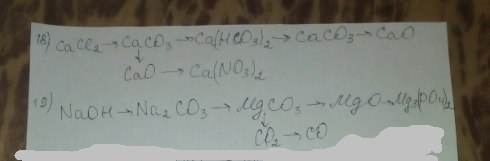 18) CaCl₂→CaCO₃→Ca(HCO₃)₂→CaCO₃→CaO
↓
CaO→Ca(NO₃)₂
19) NaOH→Na₂CO₃→MgCO₃→MgO→Mg₃(PO₄)₂
↓
CO₂→CO